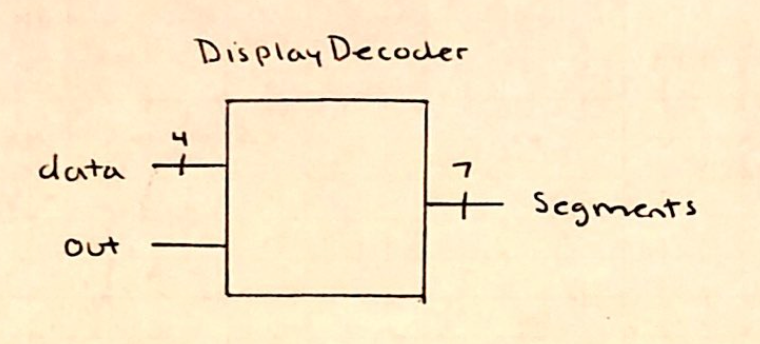 DisplayDecoder
4
data
7
Segments
out